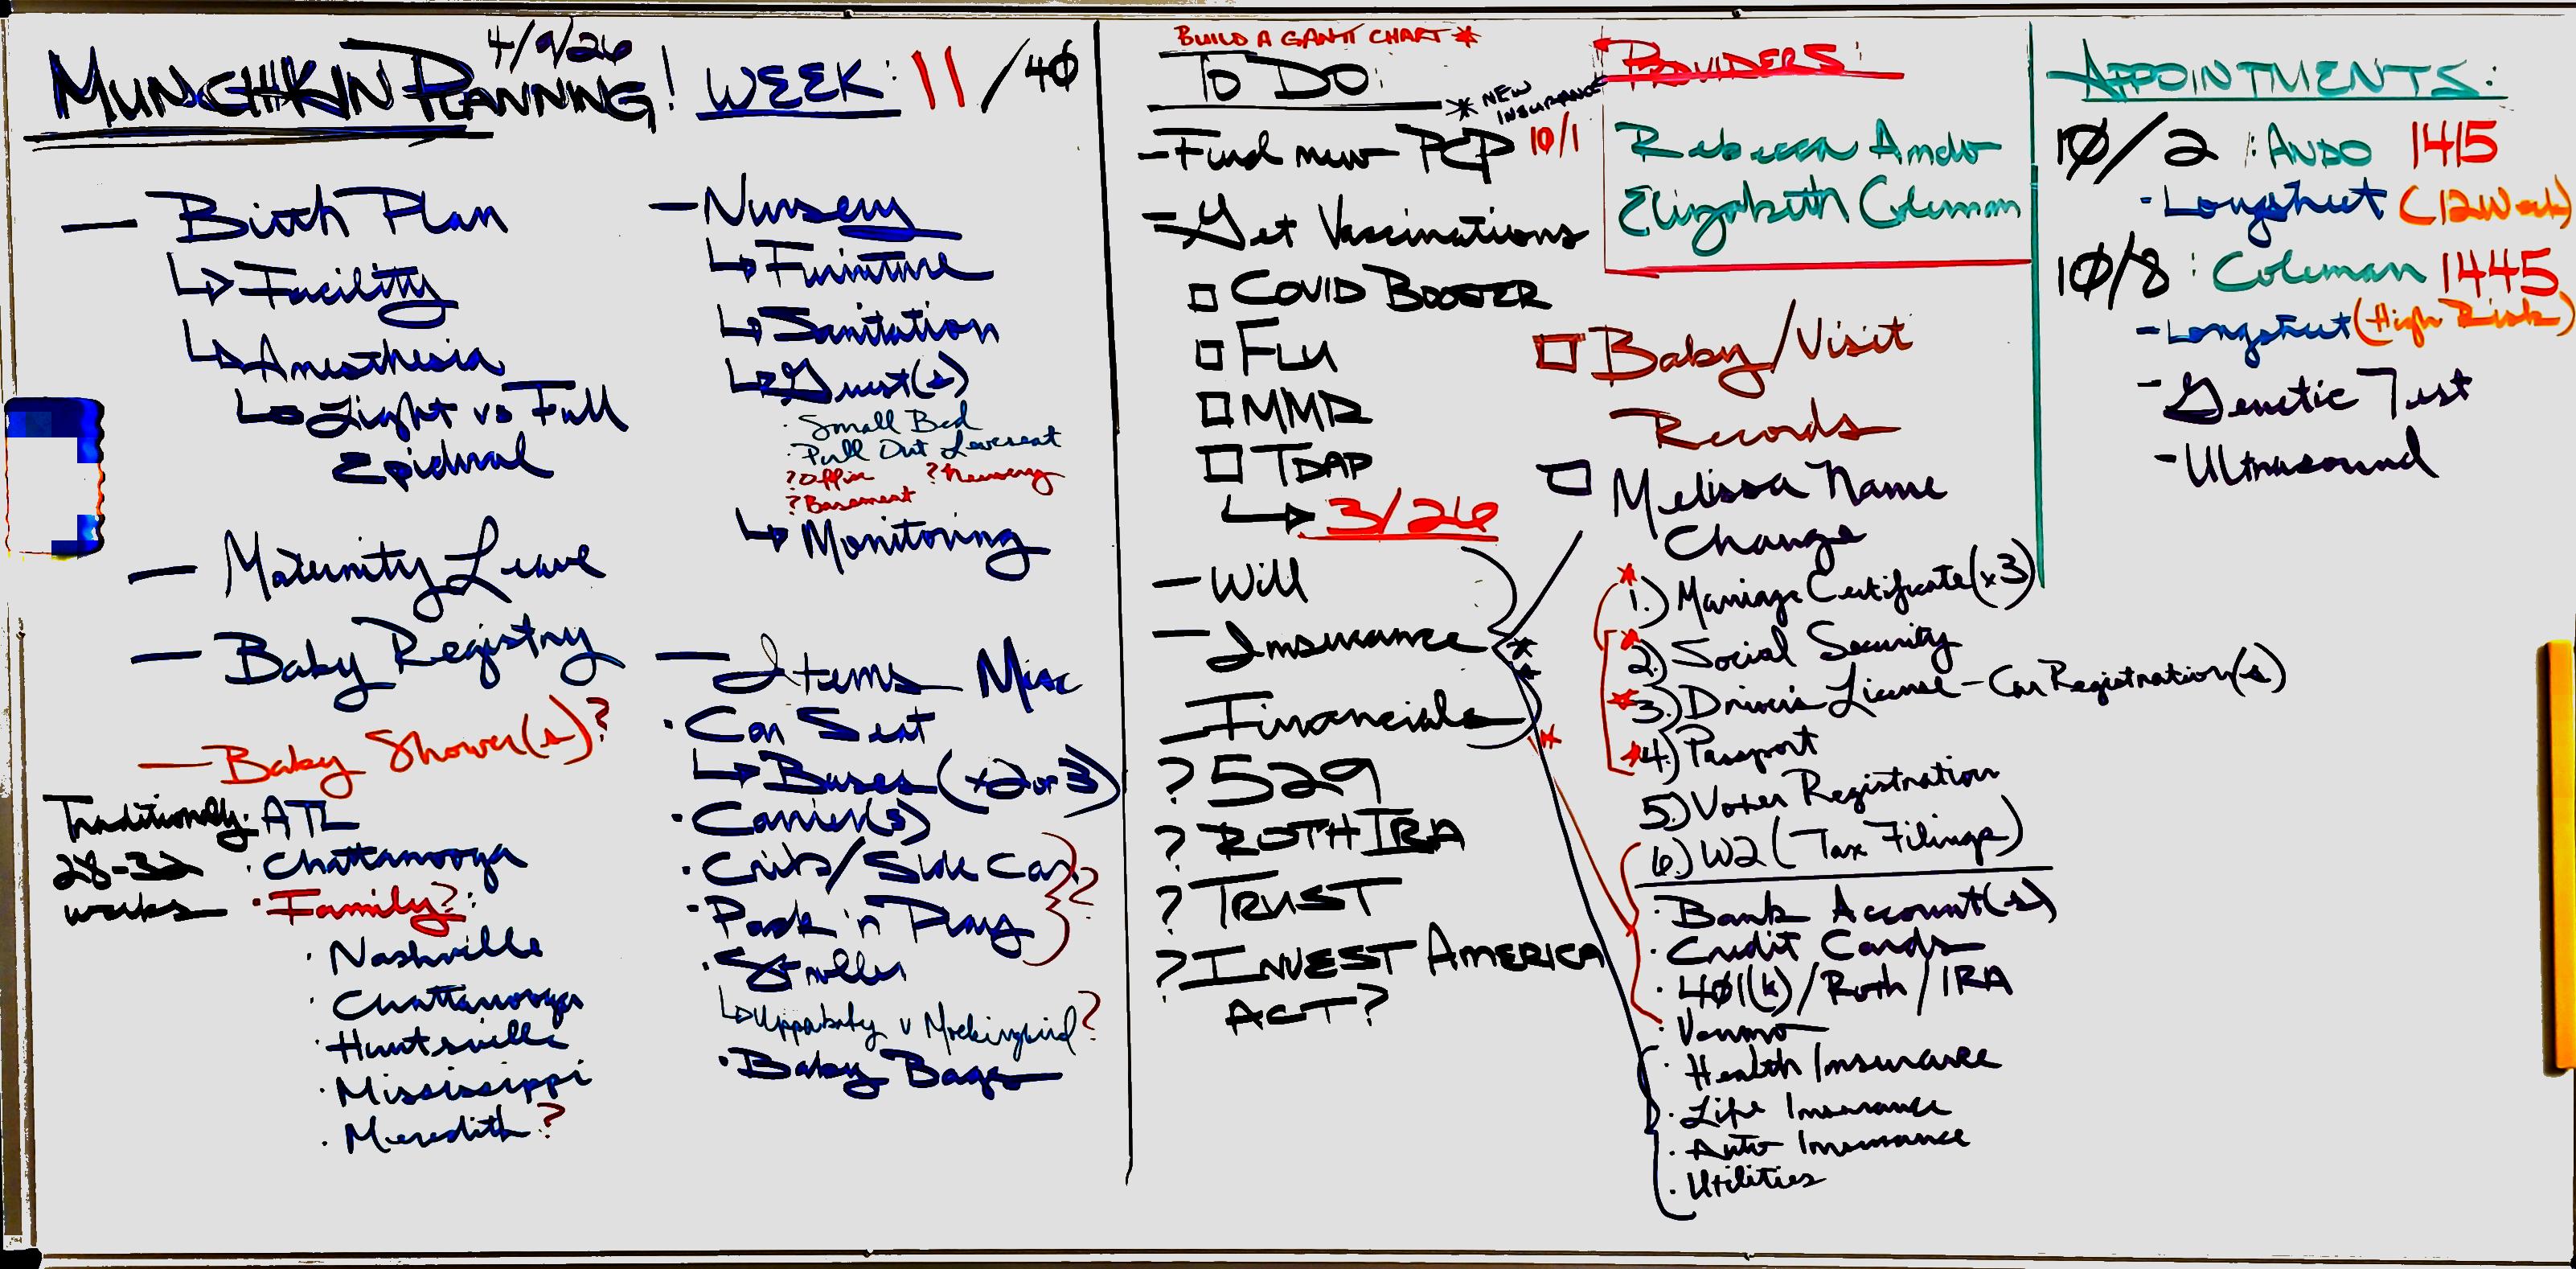 4/9/26
MUNCHKIN PLANNING! WEEK: 11/40
— Birth Plan
↳ Facility
↳ Anesthesia
↳ Light vs Full
Epidural
— Maternity Leave
— Baby Registry
— Baby Shower(s)?
Traditionally
28-32
weeks
· ATL
· Chattanooga
· Family?:
· Nashville
· Chattanooga
· Huntsville
· Mississippi
· Meredith?
— Nursery
↳ Furniture
↳ Sanitation
↳ Guest(s)
· Small Bed
· Pull Out Loveseat
? Office ? Nursery
? Basement
↳ Monitoring
— Items Misc
· Car Seat
↳ Bases (x2 or 3)
· Carrier(s)
· Crib/Side Car
· Pack 'n Play
??
· Stroller
↳ Uppababy v Mockingbird?
· Baby Bags
BUILD A GANTT CHART *
TO DO:
* NEW
INSURANCE
- Find new PCP 10/1
- Get Vaccinations
□ COVID BOOSTER
□ FLU
□ MMR
□ TDAP
↳ 3/26
— Will
— Insurance
— Financials
? 529
? ROTH IRA
? TRUST
? INVEST AMERICA
ACT?
PROVIDERS:
Rebecca Ando
Elizabeth Coleman
□ Baby/Visit
Records
□ Melissa Name
Change
* 1.) Marriage Certificate (x3)
* 2.) Social Security
* 3.) Driver's License - Car Registration(s)
* 4.) Passport
5.) Voter Registration
6.) W2 (Tax Filings)
· Bank Account(s)
· Credit Cards
· 401(k)/Roth/IRA
· Venmo
· Health Insurance
· Life Insurance
· Auto Insurance
· Utilities
APPOINTMENTS:
10/2 : ANDO 1415
- Longstreet (12 Week)
10/8 : Coleman 1445
- Longstreet (High Risk)
- Genetic Test
- Ultrasound